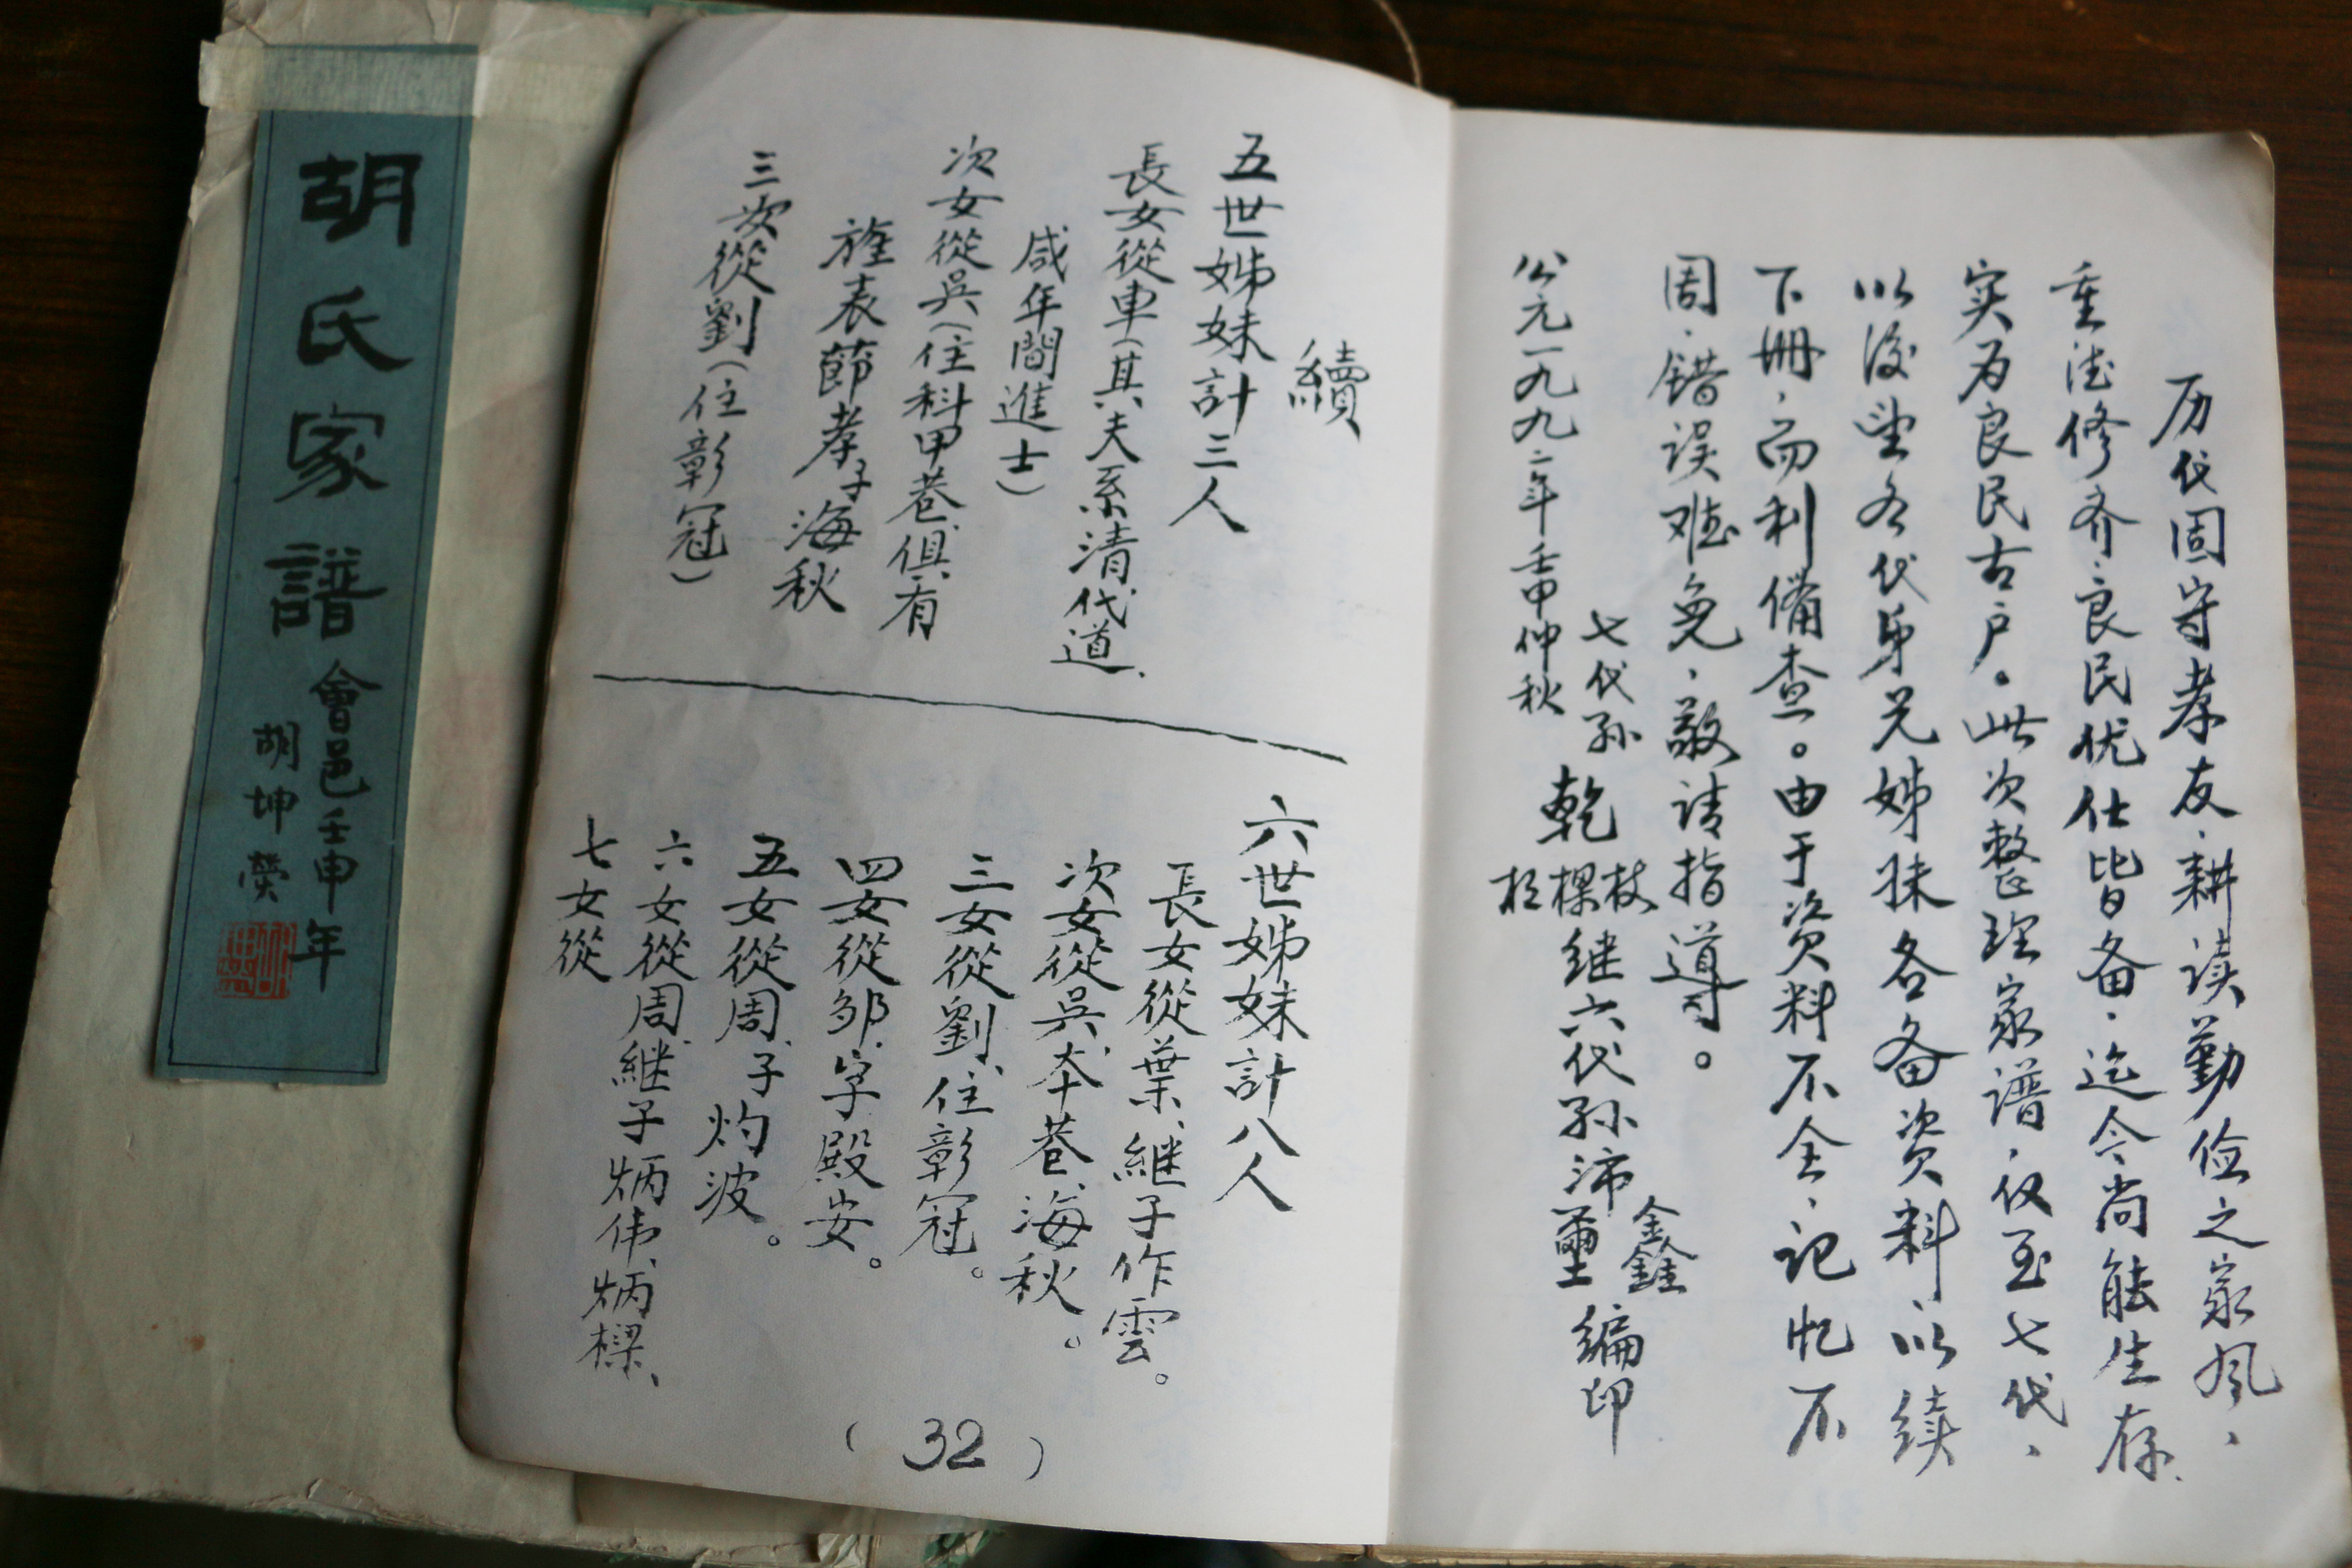 历代固守孝友、耕读勤俭之家风、
重德修齐、良民优仕皆备、迄今尚能生存、
实为良民古户。此次整理家谱、仅至七代、
以后望各代弟兄姊妹各备资料以续
下册、而利備查。由于资料不全、记忆不
周、错误难免、敬请指导。
七代孙 乾 杖 樑 继六代孙沛 鑫 壐 编印
公元一九九二年壬申仲秋
續
五世姊妹計三人
長女從車(其夫系清代道、
咸年間進士)
次女從吳(住科甲巷、俱、有
旌表節孝子海秋
三女從劉(住彰冠)
六世姊妹計八人
長女從葉、継子作雲。
次女從吳、本巷、海秋。
三女從劉、住彰冠。
四女從邹、字殿安。
五女從周、子灼波。
六女從周、継子炳伟、炳樑、
七女從
(32)
胡氏家譜
會邑壬申年
胡坤榮